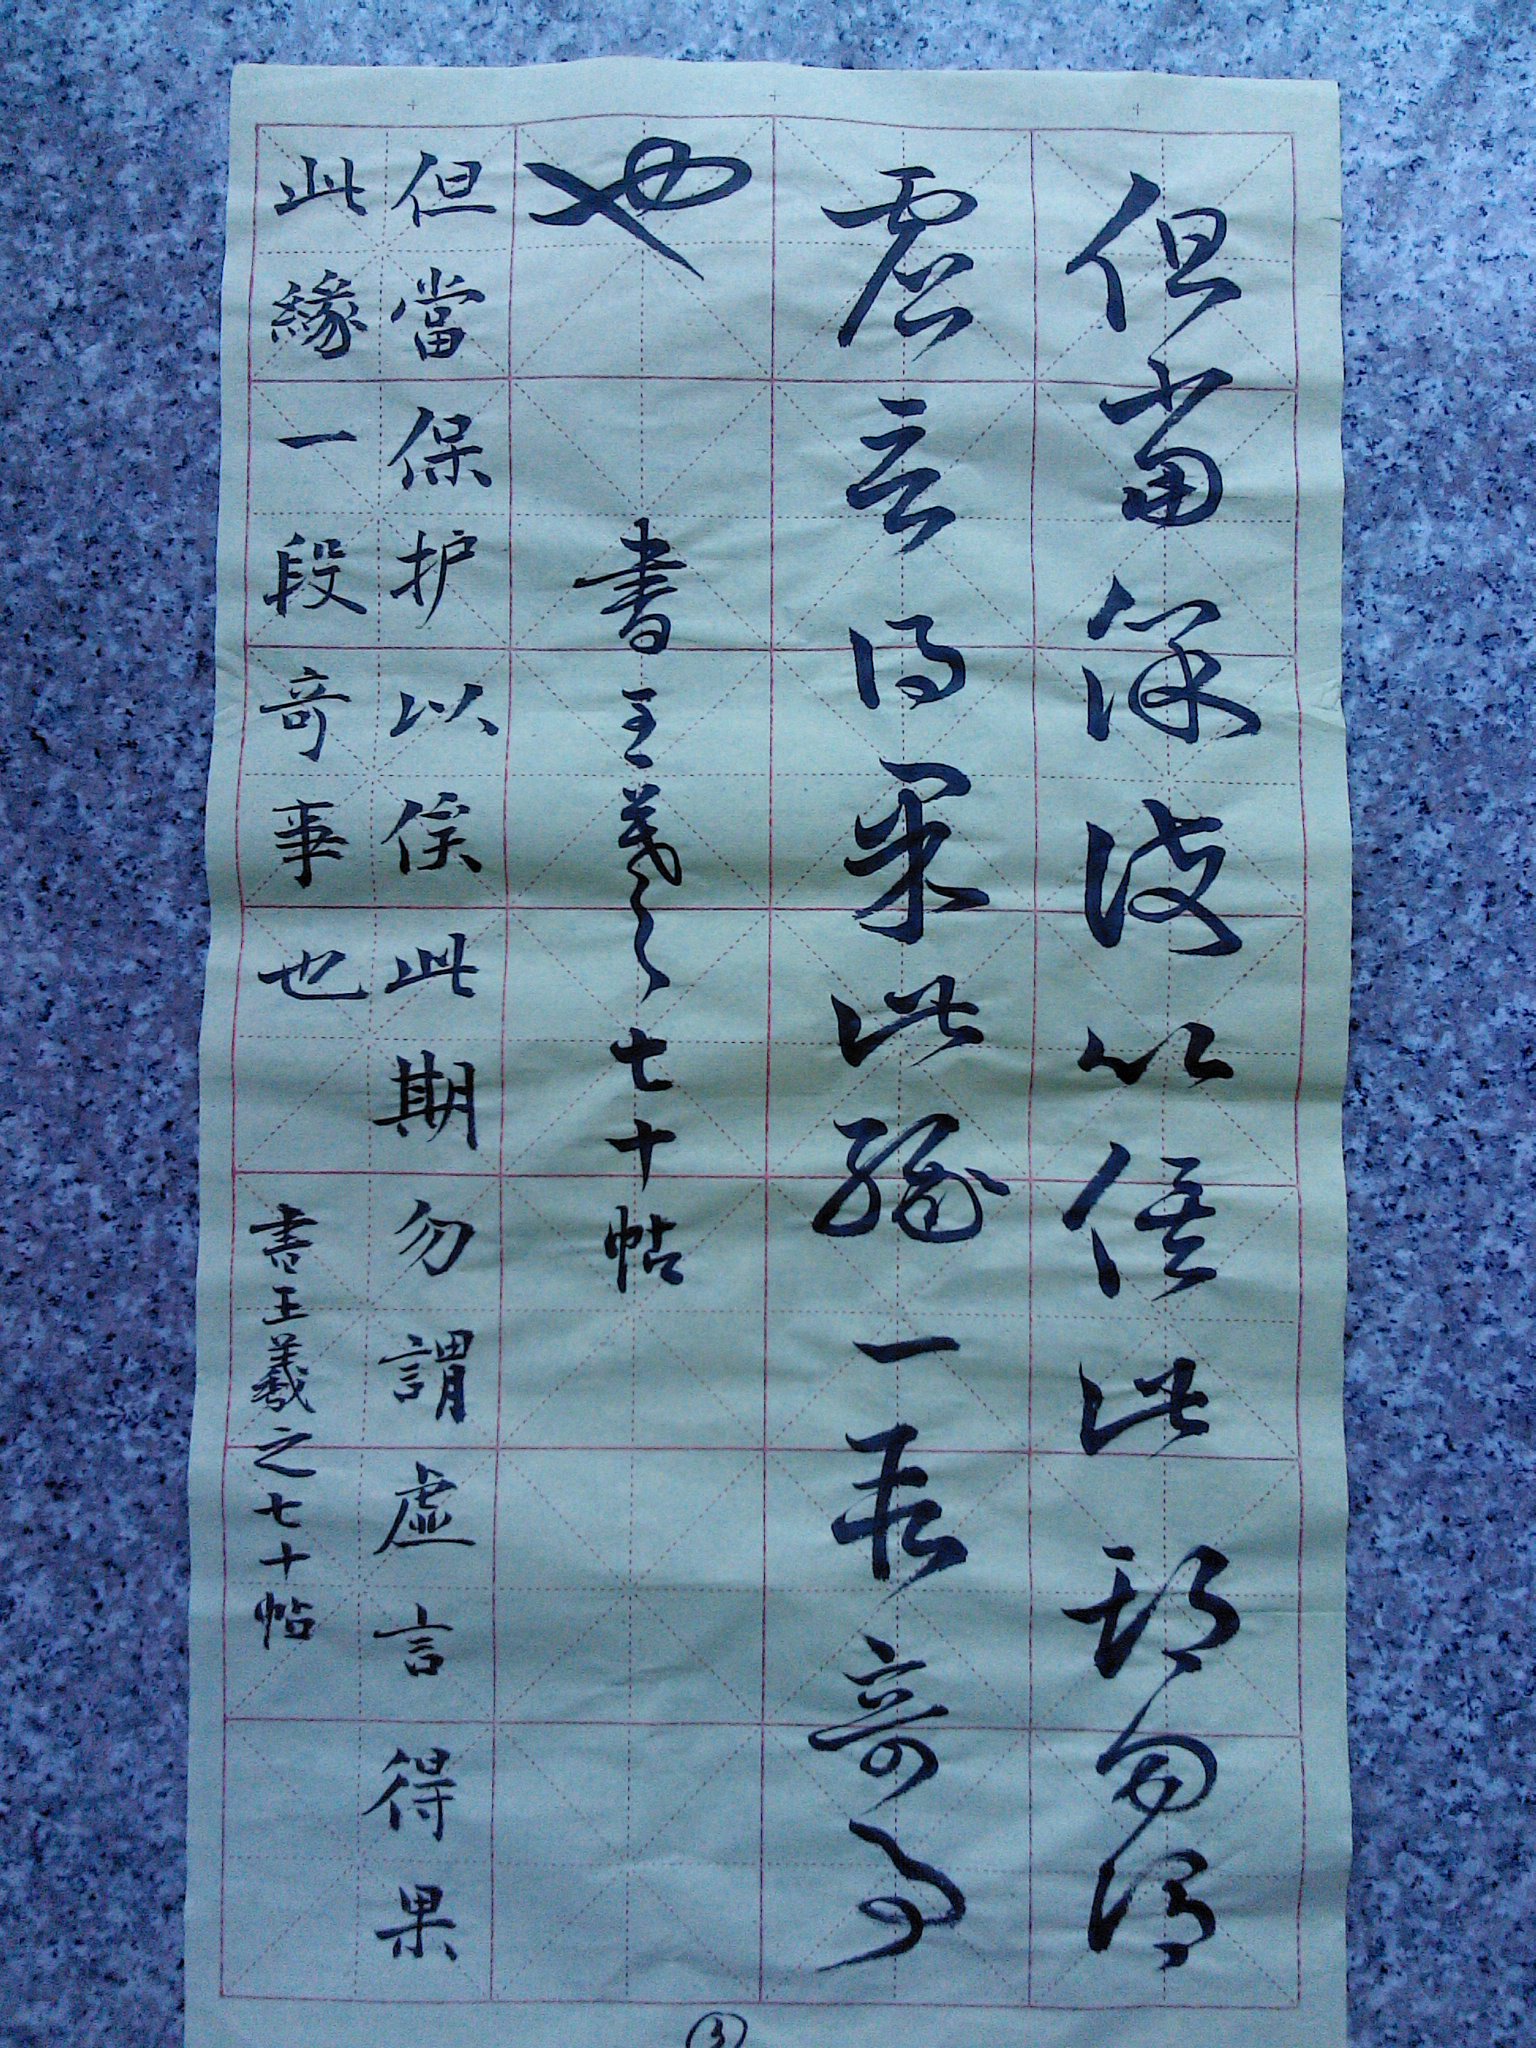 但當保護以俟此期勿謂
虛言得果此緣一段奇事
也
書王羲之七十帖
但當保护以俟此期勿謂虛言得果
此緣一段奇事也
書王羲之七十帖
③